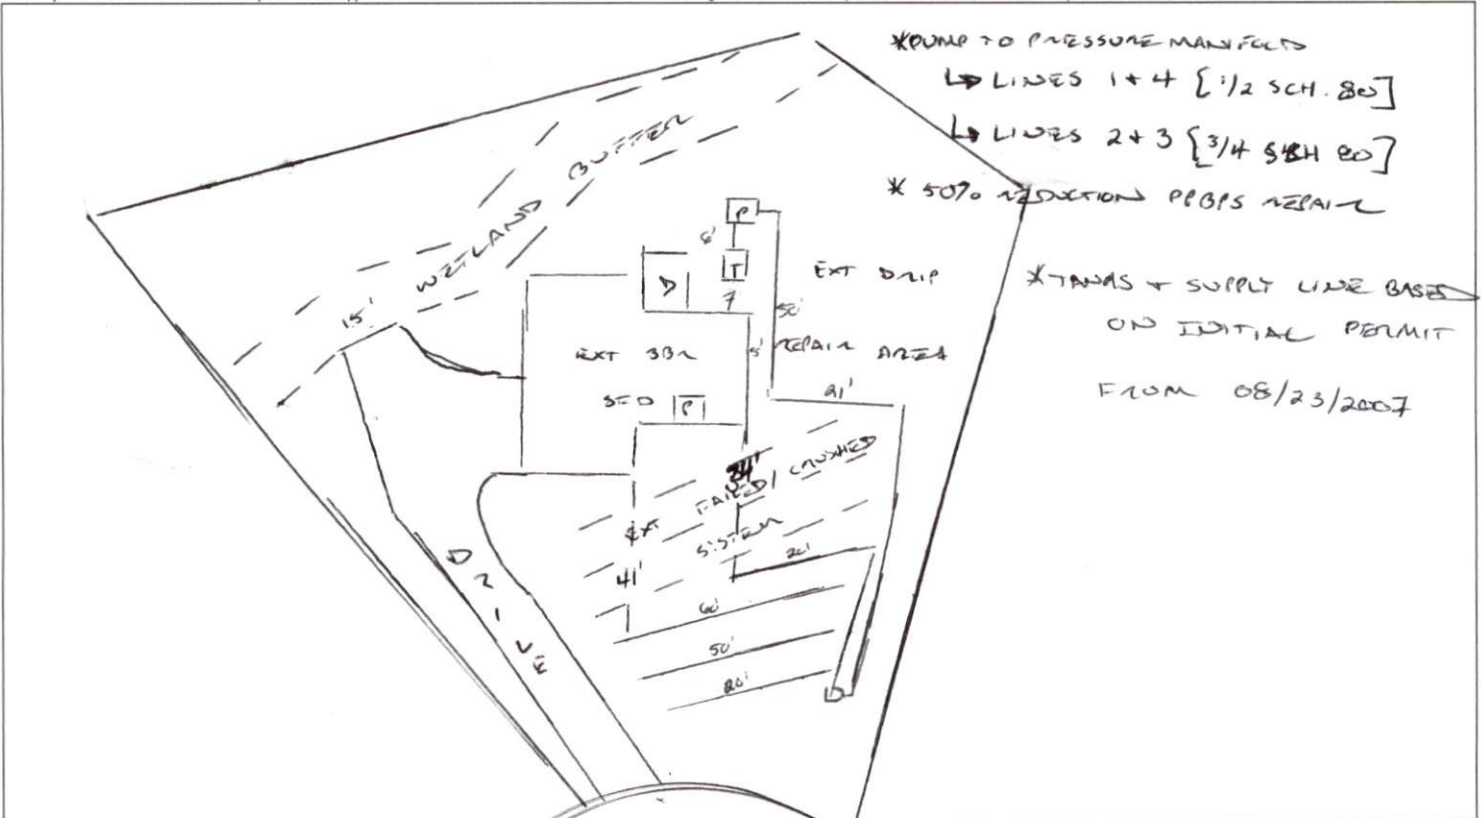 *PUMP TO PRESSURE MANIFOLD
↳ LINES 1+4 [1/2 SCH. 80]
↳ LINES 2+3 [3/4 SCH 80]
* 50% REDUCTION PPBPS REPAIR
*TANKS + SUPPLY LINE BASED
ON INITIAL PERMIT
FROM 08/23/2007
15' WETLAND BUFFER
P
6'
T
7
D
EXT DRIP
50'
REPAIR AREA
5'
EXT 3BR
SFD
P
21'
EXT FAILED/CRUSHED
SYSTEM
41'
20'
60'
50'
20'
D
DRIVE